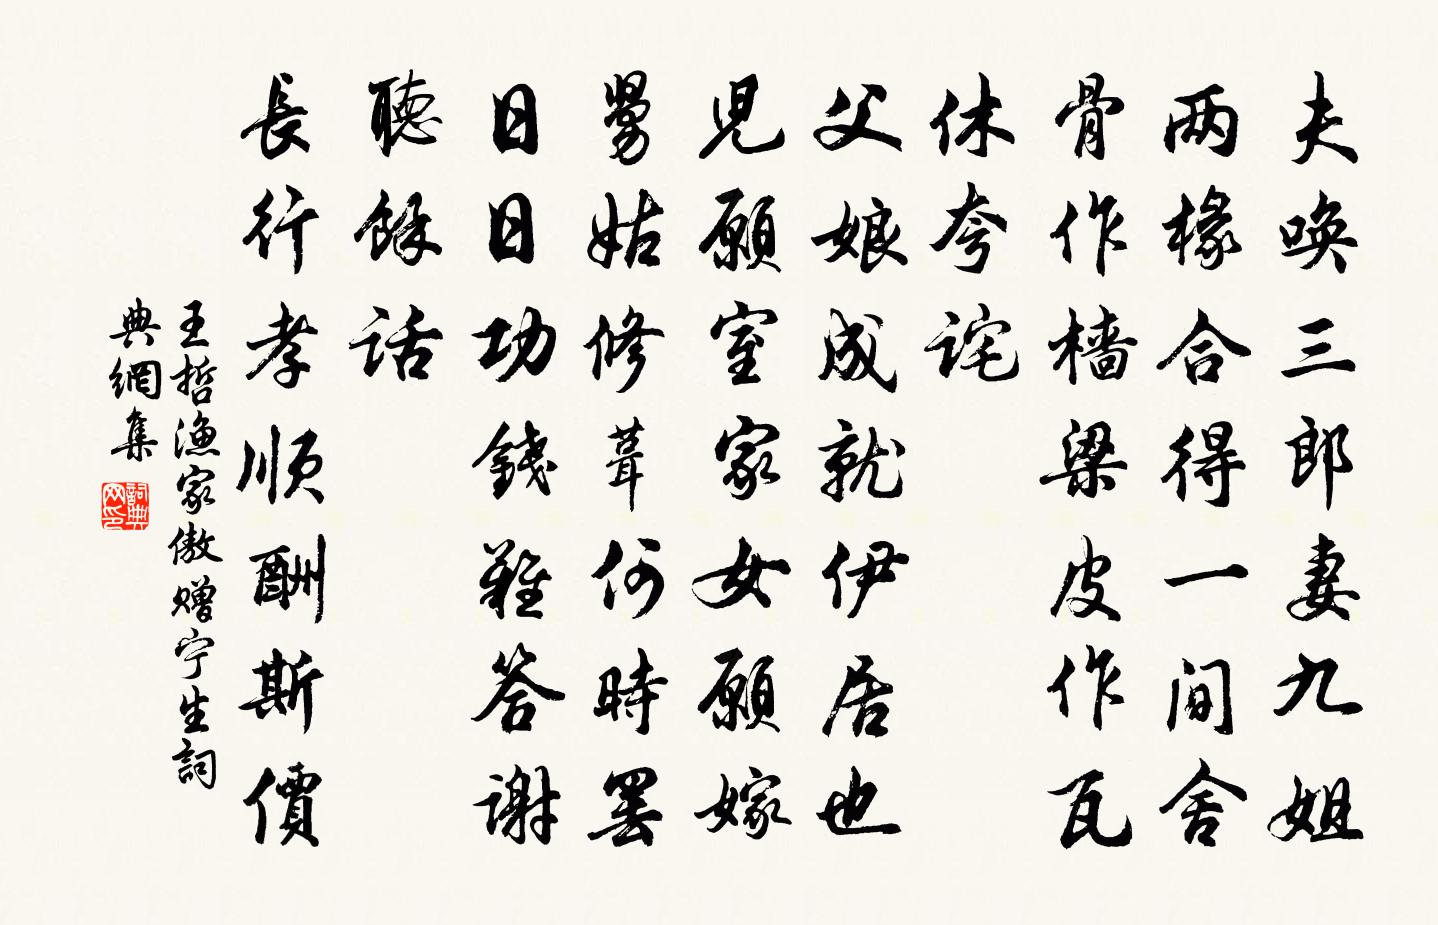 夫唤三郎妻九姐
两椽合得一间舍
骨作檣梁皮作瓦
休夸诧
父娘成就伊居也
児願室家女願嫁
舅姑修葺何時罢
日日功錢難答谢
聽餘话
長行孝顺酬斯價
王哲漁家傲赠宁生詞
典網集
詞典网印